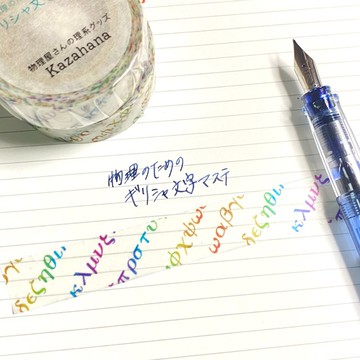 リシャ文
物理屋さんの理系グッズ
Kazahana
物理のための
ギリシャ文字マステ
δεζηθι,
κλμνξ.
πρστυ.
φχψω
ωαβγ.
δεζηθι,
κλμνξ.